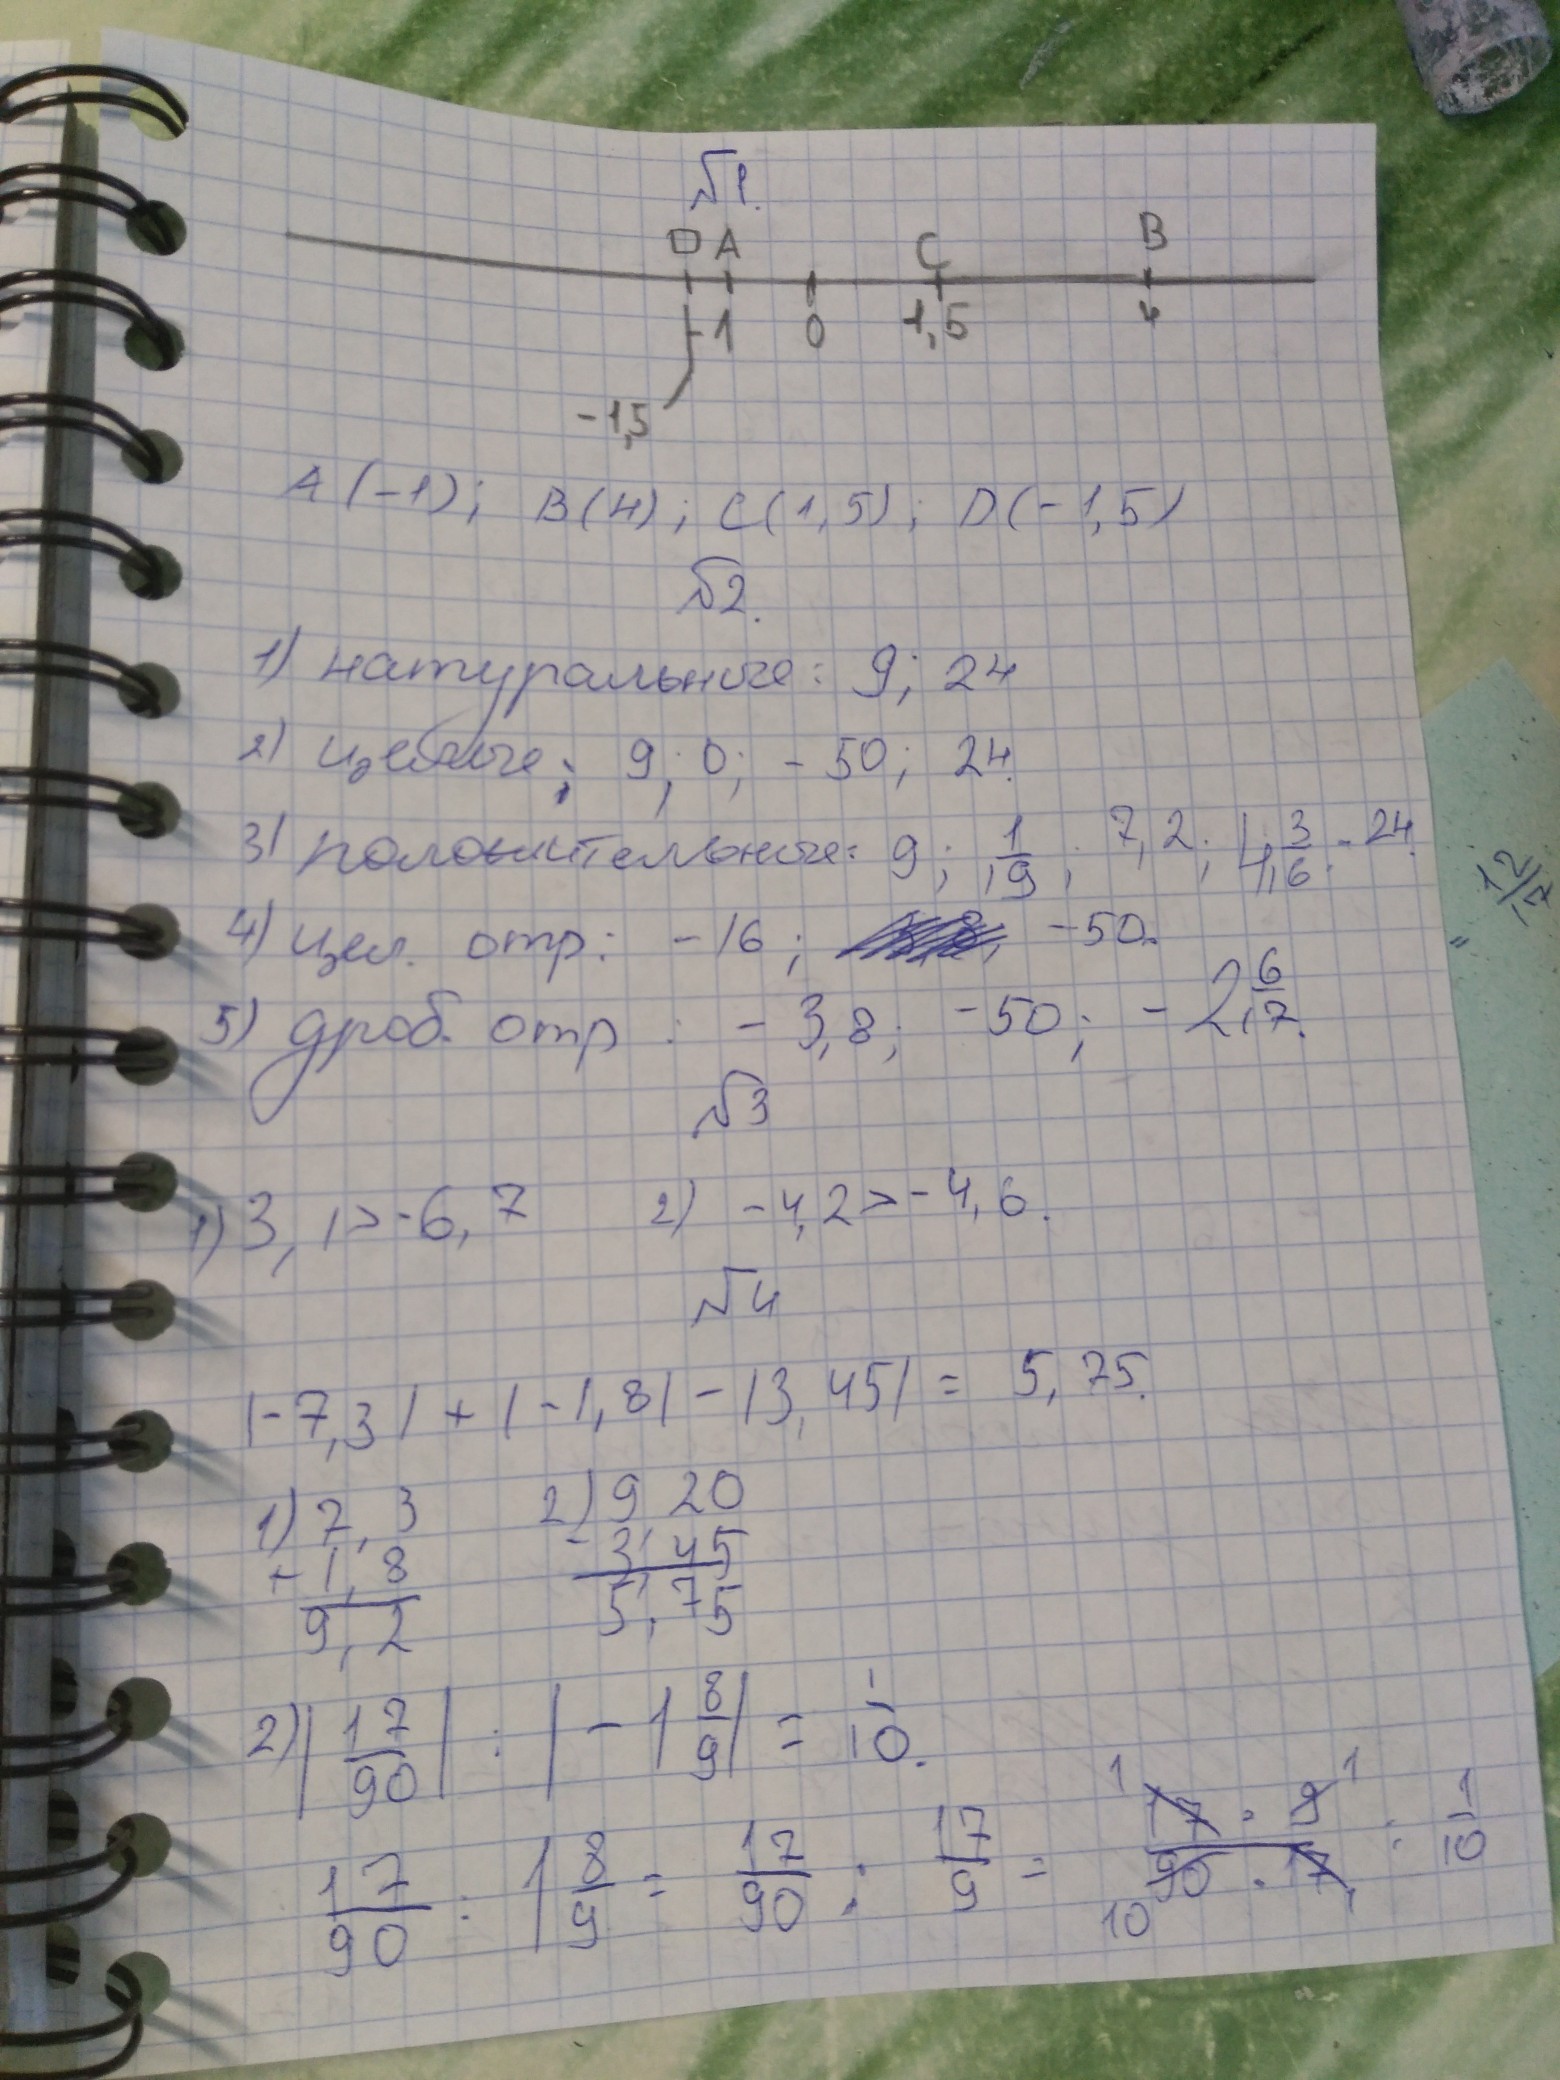 №1.
D A C B
-1 0 1,5 4
-1,5
A (-1); B(4); C(1,5); D(-1,5)
№2.
1) натуральные: 9; 24
2) целые: 9; 0; -50; 24.
3) положительные: 9; 1/9; 7,2; 4 3/6; 24.
4) цел. отр: -16; -50.
5) дроб. отр: -3,8; -50; -2 6/17.
№3
1) 3,1>-6,7 2) -4,2>-4,6.
№4
|-7,3|+|-1,8|-|3,45|= 5,75.
1) 7,3 2) 9,20
+ 1,8 - 3,45
9,2 5,75
2) |17/90| : |-1 8/9| = 1/10.
17/90 : 1 8/9 = 17/90 : 17/9 = 17 · 9 / 90 · 17 : 1/10
1 1 10 1
12/17